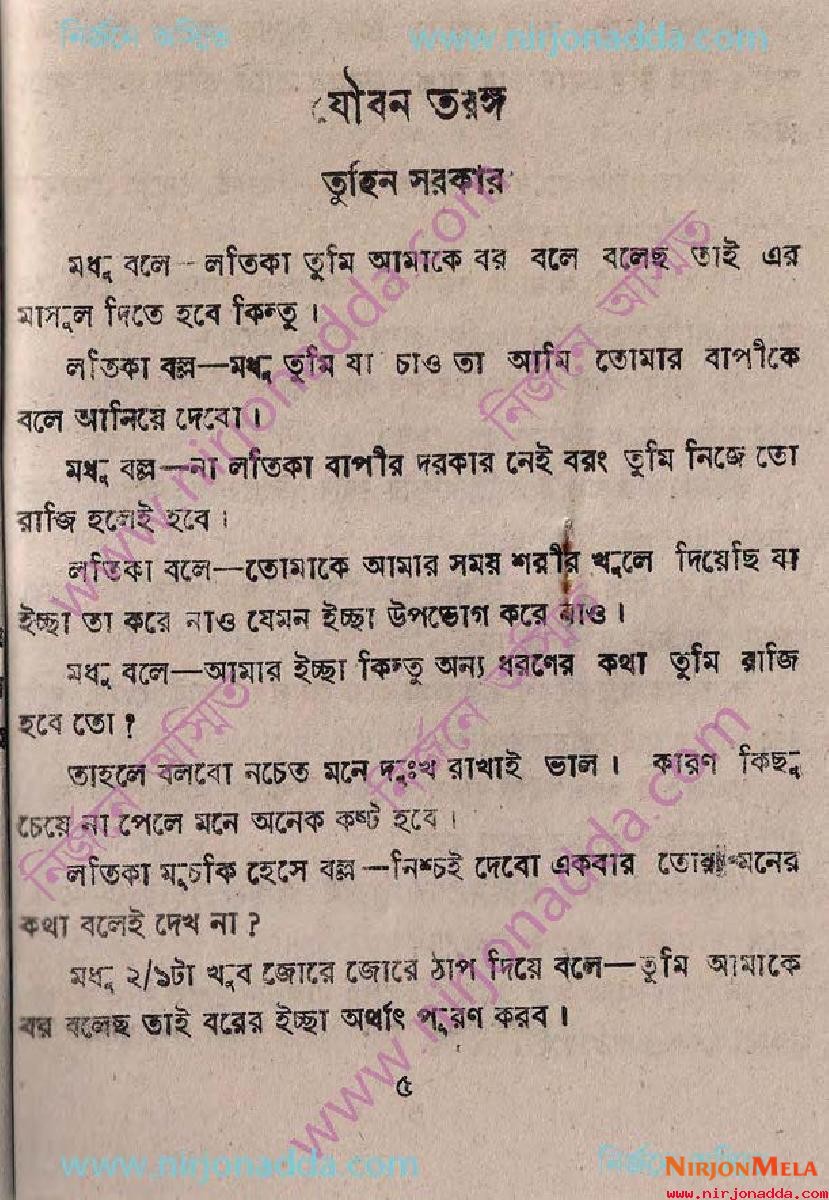 নির্জনে অস্মিত www.nirjonadda.com
যৌবন তরঙ্গ
তুহিন সরকার
মধু বলে—লতিকা তুমি আমাকে বর বলে বলেছ তাই এর
মাসুল দিতে হবে কিন্তু।
লতিকা বল্ল—মধু তুমি যা চাও তা আমি তোমার বাপীকে
বলে আনিয়ে দেবো।
মধু বল্ল—না লতিকা বাপীর দরকার নেই বরং তুমি নিজে তো
রাজি হলেই হবে।
লতিকা বলে—তোমাকে আমার সময় শরীর খুলে দিয়েছি যা
ইচ্ছা তা করে নাও যেমন ইচ্ছা উপভোগ করে নাও।
মধু বলে—আমার ইচ্ছা কিন্তু অন্য ধরণের কথা তুমি রাজি
হবে তো?
তাহলে বলবো নচেত মনে দুঃখ রাখাই ভাল। কারণ কিছু
চেয়ে না পেলে মনে অনেক কষ্ট হবে।
লতিকা মুচকি হেসে বল্ল—নিশ্চই দেবো একবার তোর মনের
কথা বলেই দেখ না?
মধু ২/১টা খুব জোরে জোরে ঠাপ দিয়ে বলে—তুমি আমাকে
বর বলেছ তাই বরের ইচ্ছা অর্থাৎ পূরণ করব।
৫
www.nirjonadda.com নির্জনে
NIRJONMELA
www.nirjonadda.com